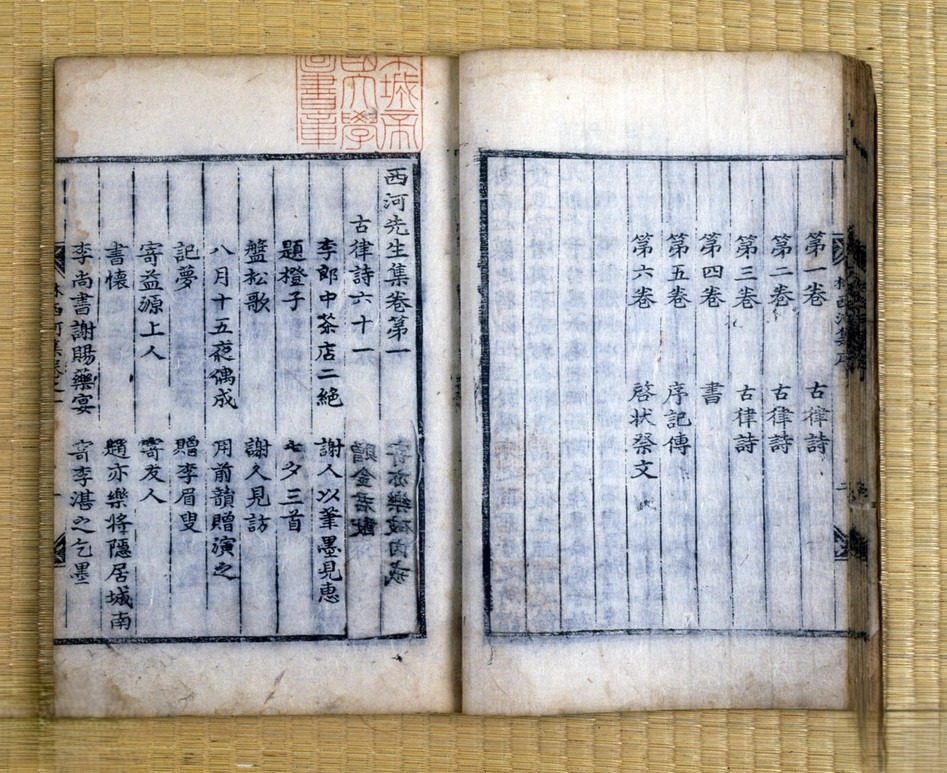 第一卷 古律詩
第二卷 古律詩
第三卷 古律詩
第四卷 書
第五卷 序記傳
第六卷 啓状祭文
京城帝
國大學
圖書章
西河先生集卷第一
古律詩六十一
李郎中茶店二絶 謝人以筆墨見惠
題橙子 七夕三首
盤松歌 謝人見訪
八月十五夜偶成 用前韻贈演之
記夢 贈李眉叟
寄益源上人 寄友人
書懷 題亦樂將隱居城南
李尚書謝賜藥宴 寄李湛之乞墨